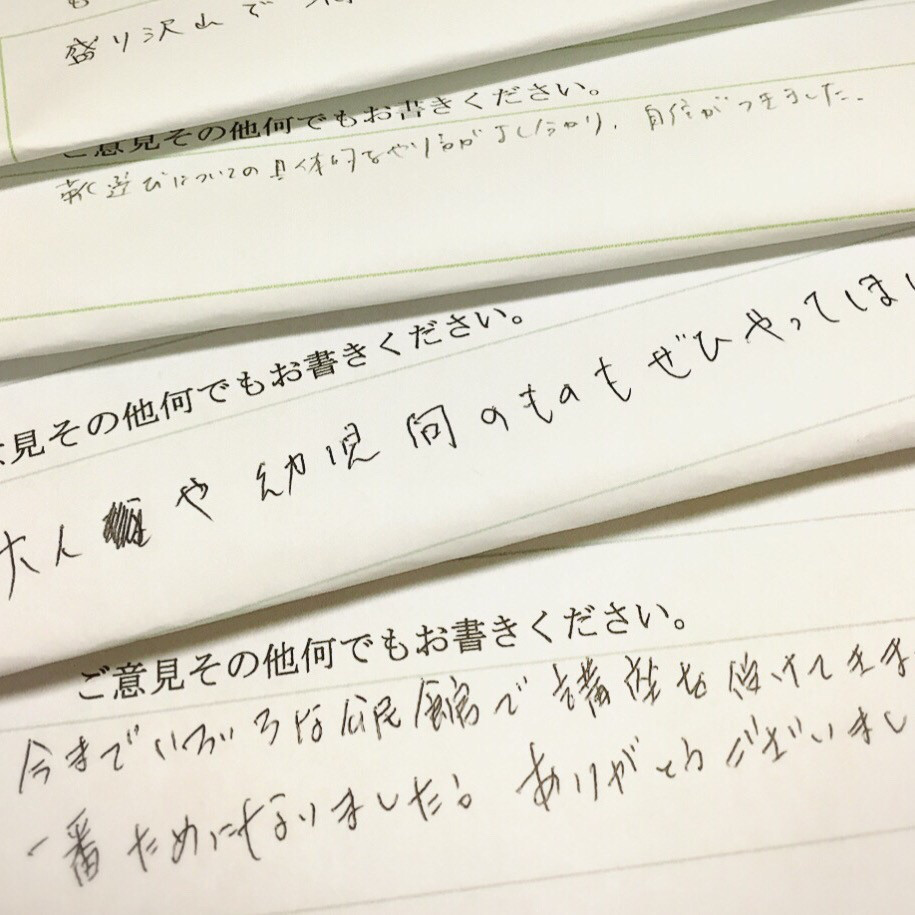 盛り沢山で
ご意見その他何でもお書きください。
靴選びについての具体的なやり方が ました。
自信がつきました。
意見その他何でもお書きください。
大人 や幼児向のものもぜひやってほし
ご意見その他何でもお書きください。
今までいろいろな公民館で講座を受けてきま
一番ためになりました。ありがとうございまし